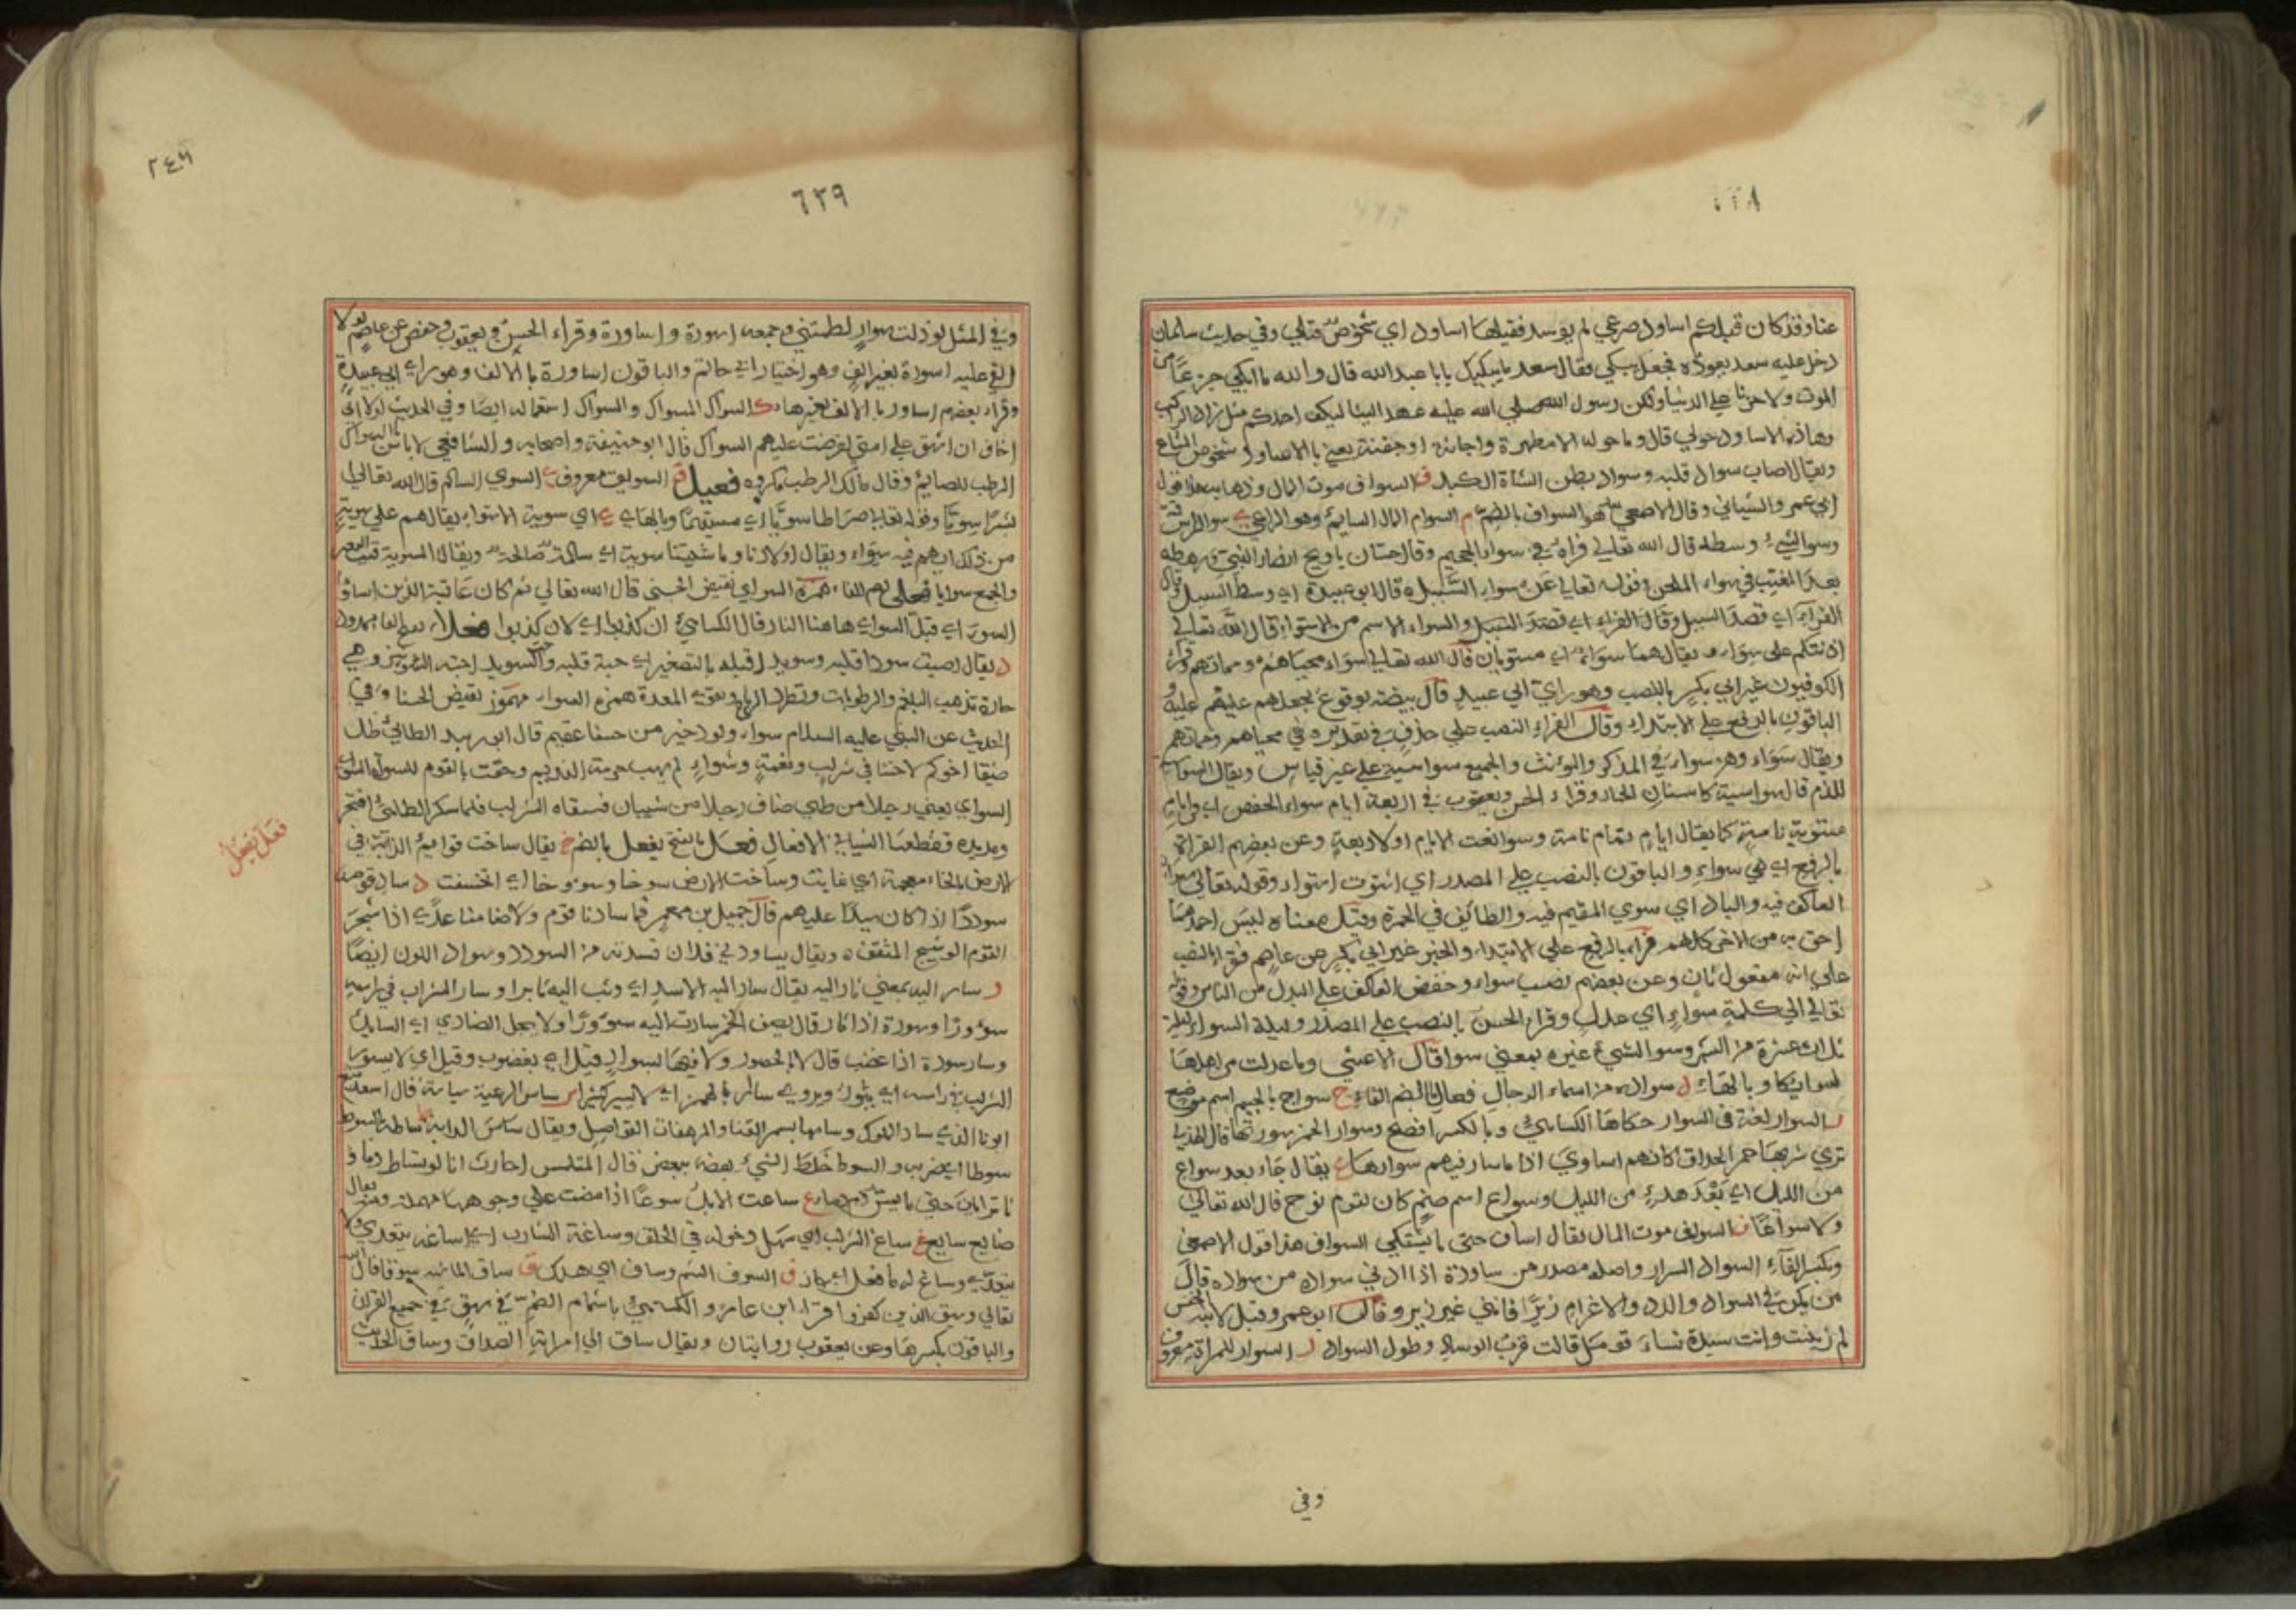 ٦٢٨
عنا وقد كان قبلكم اساود صرعي لم يوسد فقيلها اساود اي شخوص قتلي وفي حديث سلمان
دخل عليه سعد يعوده فجعل يبكي فقال سعد ما يبكيك يابا عبد الله قال والله ما ابكي جزعًا من
الموت ولا حزنا علي الدنيا ولكن رسول الله صلي الله عليه عهد الينا ليكف احدكم مثل زاد الراكب
وهاذه الاساود حولي قال وما حوله الا مطهرة واجانة او جفنة يعني بالاساود شخوص المتاع
ويقال اصاب سواد قلبه وسواد بطن الشاة الكبد ف السواف موت المال وذهابه هذا قول
ابي عمرو الشيباني وقال الاصمعي هو السواف بالضم م السوام المال السايم وهو الراعي سوا الراس
وسوا الشيء وسطه قال الله تعالي فراه في سواء الجحيم وقال حسان يا ويح انصار النبي ورهطه
بعد المغيب في سواء الملحد وقوله تعالي عن سواء السبيل قال ابو عبيدة اي وسط السبيل وقال
الفراء اي قصد السبيل وقال الفراء اي قصد السبيل والسواء الاسم من الاستواء قال الله تعالي
اذنتكم علي سواء ويقال هما سواء اي مستويان قال الله تعالي سواء محياهم ومماتهم وقرا
الكوفيون غير ابي بكر بالنصب وهو راي ابي عبيد قال ينصبه بوقوع نجعلهم عليهم عليه و
الباقون بالرفع علي الابتداء وقال الفراء النصب علي حذف في تقديره في محياهم ومماتهم
ويقال سواء وهو سواء في المذكر والمونث والجميع سواسية علي غير قياس ويقال السواسية
للذم قال سواسية كاسنان الحمار وقراء الحسن ويعقوب في اربعة ايام سواء بالخفض اي في ايام
مستوية تامة كما يقال ايام تمام تامة وسوا نعت الايام او لاربعة وعن بعضهم القراة
بالرفع اي هي سواء والباقون بالنصب علي المصدر اي استوت استواء وقوله تعالي سواء
العاكف فيه والباد اي سوي المقيم فيه والطائف في الحرمة وقيل معناه ليس احدهما
احق به من الاخر كلهم قراء بالرفع علي الابتداء والخبر غير ابي بكر عن عاصم فقرا بالنصب
علي انه مفعول ثان وعن بعضهم نصب سواء وخفض العاكف علي البدل من الناس وقوله
تعالي الي كلمة سواء اي عدل وقراء الحسن بالنصب علي المصدر وليلة السواء ليلة
ثلاث عشرة من الشهر وسوا الشيء غيره بمعني سوا قال الاعشي وما عدلت من اهلها
لسوائكا وبالهاء ل سوادة من اسماء الرجال فعال بالضم الفاء ج سواج بالجيم اسم موضع
ر السوار لغة في السوار حكاها الكسائي وبالكسر افصح وسوار الخمر سورتها قال الهذلي
تري شربها حمر الحداق كانهم اساوي اذا ما سار فيهم سوارها ع يقال جاء بعد سواع
من الليل اي بعد هدء من الليل وسواع اسم صنم كان لقوم نوح قال الله تعالي
ولا سواعًا ف السواف موت المال يقال اساف حتى ما يشتكي السواف هذا قول الاصمعي
وبكسر الفاء السواد السرار واصله مصدر من ساودة اذا ادني سواده من سواده قال
من يكن في السواد والدد والاغرام زيرًا فانني غير زير وقال ابو عمرو قيل لابنة الخس
لم زنيت وانت سيدة نساء قومك قالت قرب الوساد وطول السواد ر السوار للمراة معروف
وفي
٢٤٦
٦٢٩
وفي المثل لو ذات سوار لطمتني وجمعه اسورة واساورة وقراء الحسن ويعقوب وحفص عن عاصم لولا
القي عليه اسورة بغير الف وهو اختيار ابي حاتم والباقون اساورة بالالف وهو راي ابي عبيدة
وقراء بعضهم اساور بالالف بغير هاء ك السواك المسواك والسواك استعماله ايضا وفي الحديث لولا اني
اخاف ان اشق علي امتي لفرضت عليهم السواك قال ابو حنيفة واصحابه والشافعي لا باس بالسواك
الرطب للصائم وقال مالك الرطب مكروه فعيل ق السويق معروف ي السوي السالم قال الله تعالي
بشرا سويا وقوله تعالي صراطا سويا اي مستقيمًا وبالهاء ي اي سوية الاستواء يقال هم علي سوية
من ذلك اي هم فيه سواء ويقال اولادنا وماشيتنا سوية اي سالمة صالحة ويقال السوية قتب البعير
والجمع سوايا فعلى بضم الفاء همزة السواي نقيض الحسني قال الله تعالي ثم كان عاقبة الذين اساوا
السوء اي قيل السواي هاهنا النار قال الكسائي ان كذبوا اي لان كذبوا فعلاء بفتح الفا ممدود
د يقال اصبت سوداء قلبه وسويداء قلبه بالتصغير اي حبة قلبه والسويداء حبة الشونيز وهي
حارة تذهب البلغم والرطوبات وتطرد الرياح وتقوي المعدة همزة السواء مهموز نقيض الحسنا وفي
الحديث عن النبي عليه السلام سواء ولود خير من حسنا عقيم قال ابو زبيد الطائي ظل
ضيفا اخوكم لاخينا في شراب ونعمة وشواء لم يهب حرمة النديم وحقت يا لقوم للسواة السواء
السواي يعني رجلا من طي ضاف رجلا من شيبان فسقاه الشراب فلما سكر الطائي افتخر
ومد يده فقطعها الشيباني الافعال فعل بالفتح يفعل بالضم خ يقال ساخت قوائم الدابة في
الارض بالخاء معجمة اي غابت وساخت الارض سوخا وسووخا اي انخسفت د ساد قومه
سوددًا اذا كان سيدًا عليهم قال جميل بن معمر فما سادنا قوم ولا ضامنا عدي اذا شجر
القوم الوشيج المثقف ويقال ساودني فلان فسدته من السودد وسواد اللون ايضًا
ر سار اليه بمعني ثار اليه يقال سار اليه الاسد اي وثب اليه ثايرا وسار الشراب في راسه
سوورا وسورة اذا ثار قال يصف الخمر سارت اليه سوورا ولا يجل الضاري اي السايل
وسار سورة اذا غضب قال لا بالحصور ولا فيها بسوار قيل اي بغضوب وقيل اي لا يسور
الشراب في راسه اي يثور ويروي سائر بالهمز اي لا يسير كثيرا س ساس الرعية سياسة قال اسعد تبع
ابونا الذي ساد الملوك وساسها بسمر القنا والمرهفات القواصل ويقال ساس الدابة ط ساطه بالسوط
سوطا اي ضربه والسوط خلط الشيء بعضه ببعض قال المتلمس احارث انا لو تساط دماونا
تزايلن حتى ما يمس دم دما ع ساعت الابل سوعًا اذا مضت علي وجوهها مهملة ومنه يقال
ضايع سايع غ ساغ الشراب اي سهل دخوله في الحلق وساغه الشارب اي اساغه يتعدي ولا
يتعدي وساغ له ما فعل اي جاز ف السوف الشم وساف اي هلك ق ساق الماشية سوقا قال الله
تعالي وسيق الذين كفروا قراء ابن عامر والكسائي باشمام الضم في سيق في جميع القران
والباقون بكسرها وعن يعقوب روايتان ويقال ساق الي امراته الصداق وساق الحديث
فَعَلَ يفعُلُ